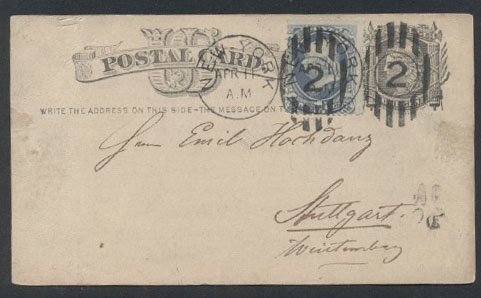 U S
POSTAL CARD.
NEW YORK
APR 11
A.M.
NEW YORK
2
2
WRITE THE ADDRESS ON THIS SIDE-THE MESSAGE ON T
Herrn Emil Hochdanz
Stuttgart.
Würtemberg